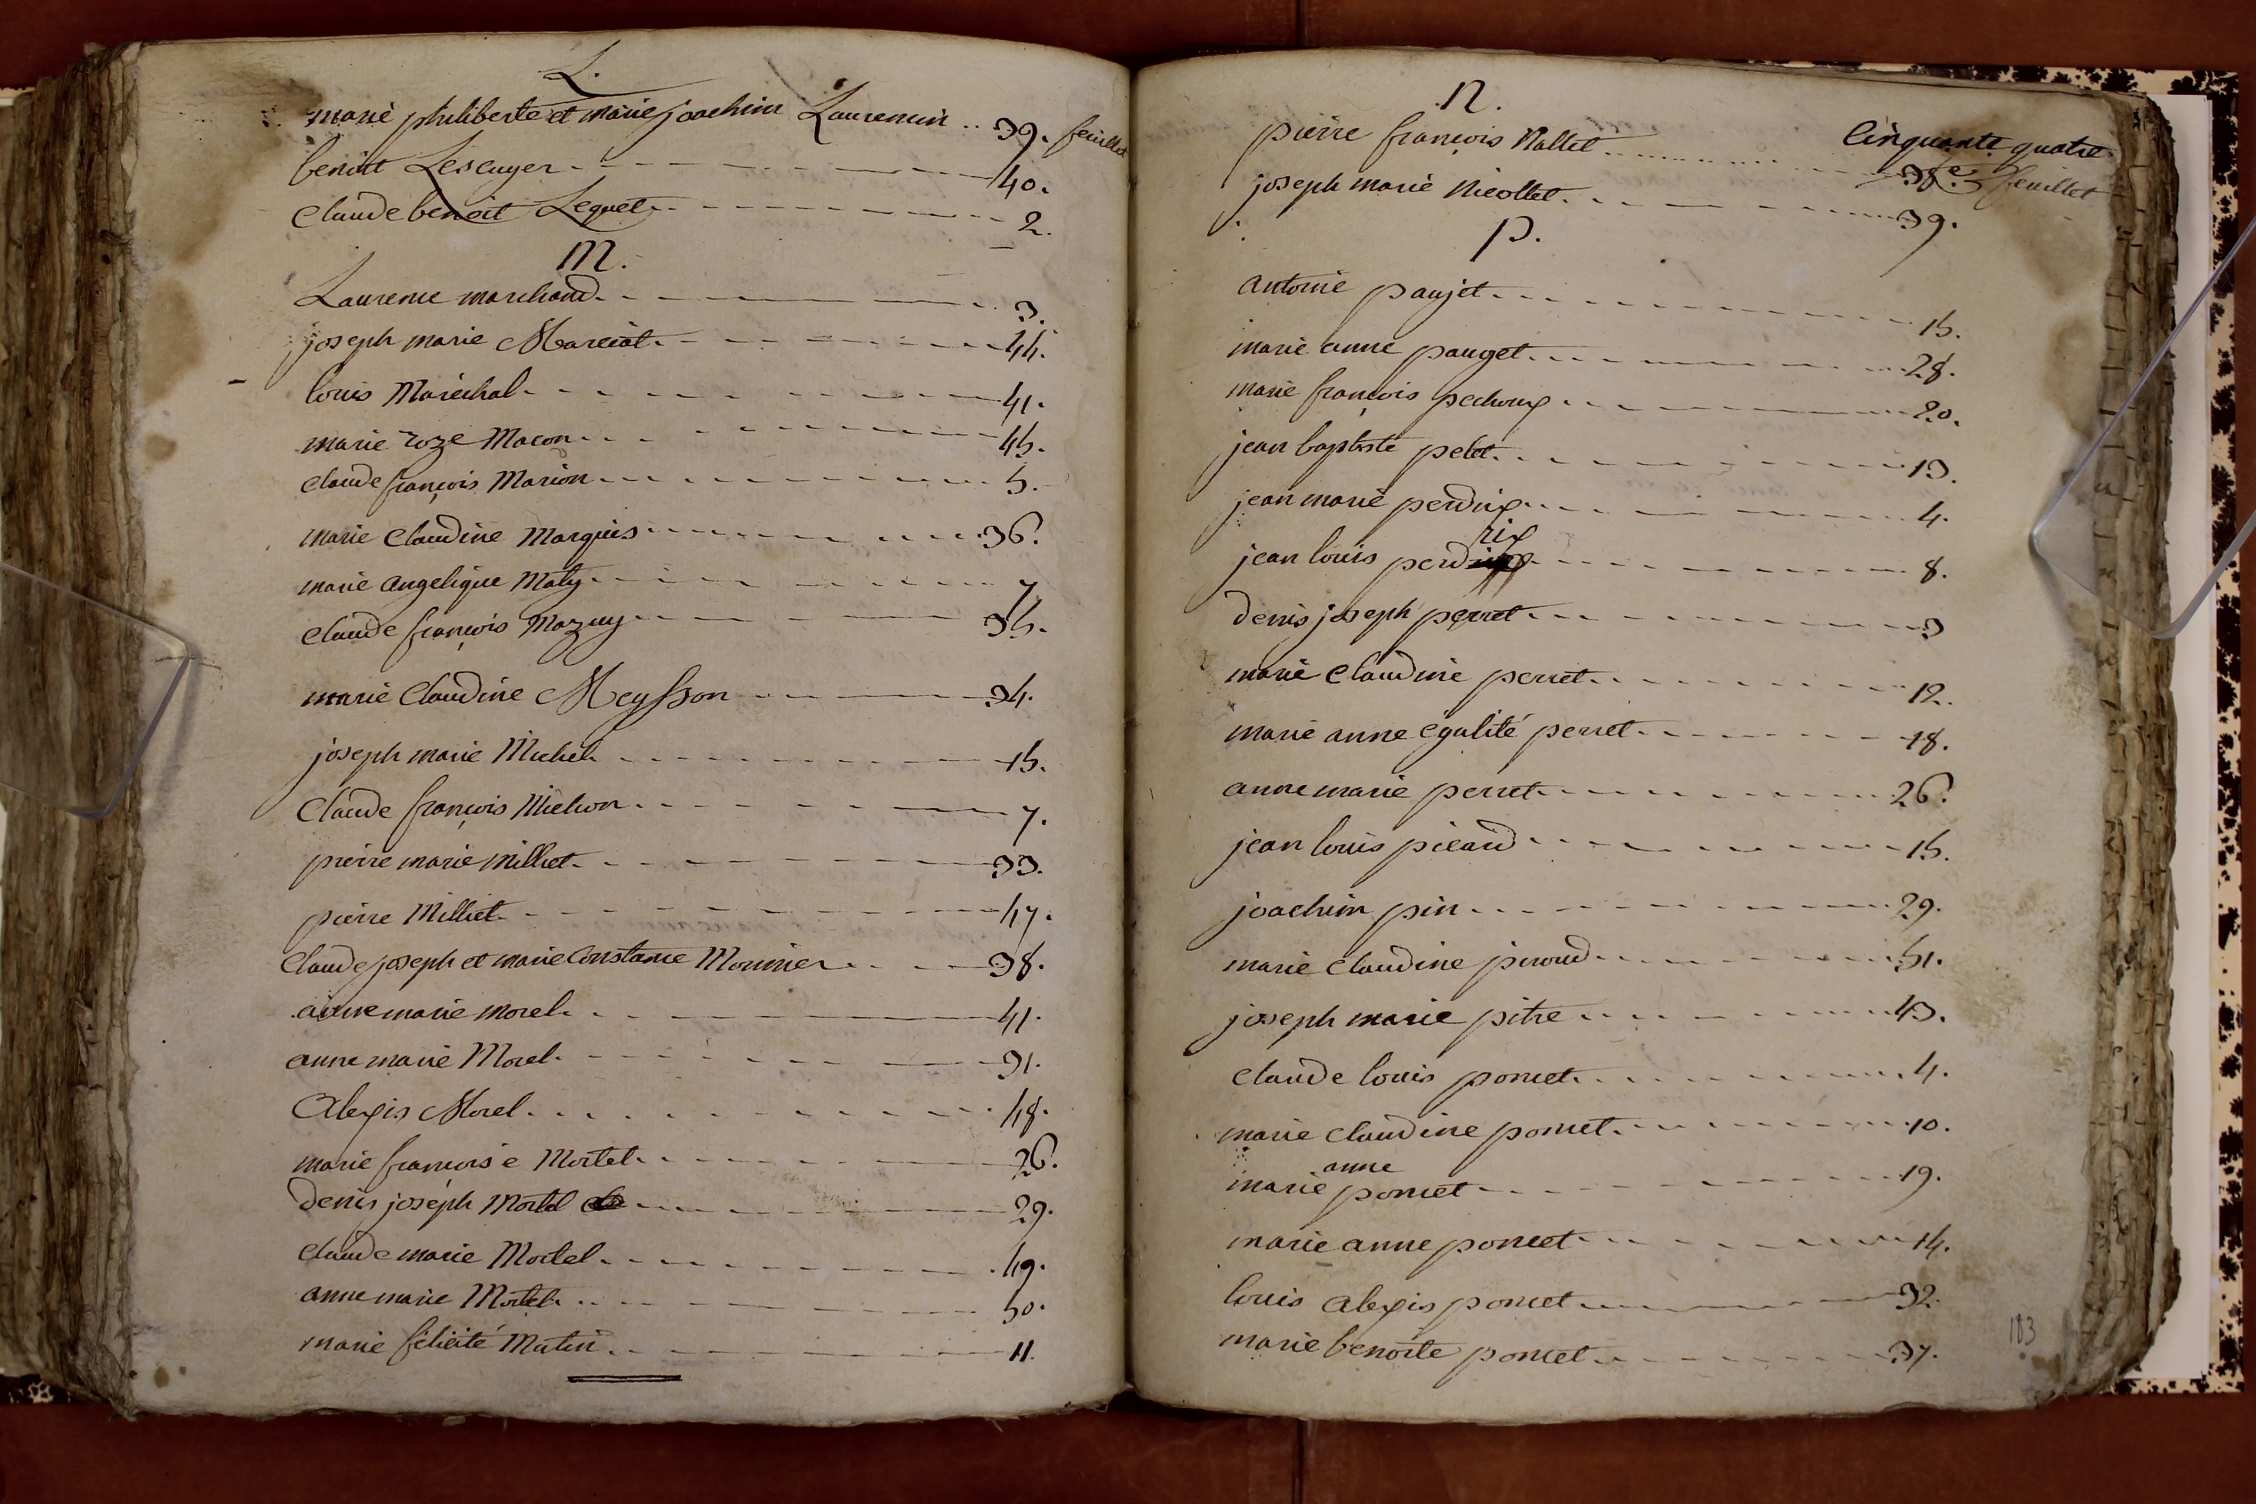 L.
marie philiberte et marie joachim Laurencin .. 39. feuillet
benoit Lescuyer - - - - 40.
claude benoit Lequet - - - - 2.
M.
Laurence marchand - - - - 3.
joseph marie Marciat - - - - 44.
louis Maréchal - - - - 41.
marie roze Macon - - - - 45.
claude françois Marion - - - - 5.
marie Claudine Marquis - - - - 36.
marie angelique Maty - - - - 7
claude françois Mazuy - - - - 35.
marie Claudine Meysson - - - - 34.
joseph marie Michel - - - - 15.
Claude françois Michon - - - - 7.
pierre marie milliet - - - - 33.
pierre Milliet - - - - 47.
Claude joseph et marie Constance Monnier - - - - 38.
anne marie morel - - - - 41.
anne marie Morel - - - - 31.
Alexis Morel - - - - 48.
marie françoise Mortel - - - - 26.
denis joseph Mortel - - - - 29.
claude marie Mortel - - - - 49.
anne marie Mortel - - - - 50.
marie félicité Mutin - - - - 11.
n.
Cinquante quatre
pierre françois Nallet - - - - 38.e feuillet
joseph marie Nicollet - - - - 39.
p.
antoine paujet - - - - 15.
marie anne pauget - - - - 28.
marie françois pechoux - - - - 20.
jean baptiste pelet - - - - 13.
jean marie perdrix - - - - 4.
rix
jean louis perd - - - - 8.
denis joseph perret - - - - 3
marie Claudine perret - - - - 12.
marie anne égalité perret - - - - 18.
anne marie perret - - - - 26.
jean louis picard - - - - 15.
joachim pin - - - - 29.
marie claudine piroud - - - - 51.
joseph marie pitre - - - - 43.
claude louis poncet - - - - 4.
marie claudine poncet - - - - 10.
anne
marie poncet - - - - 19.
marie anne poncet - - - - 14.
louis alexis poncet - - - - 32.
marie benoite poncet - - - - 37.
183